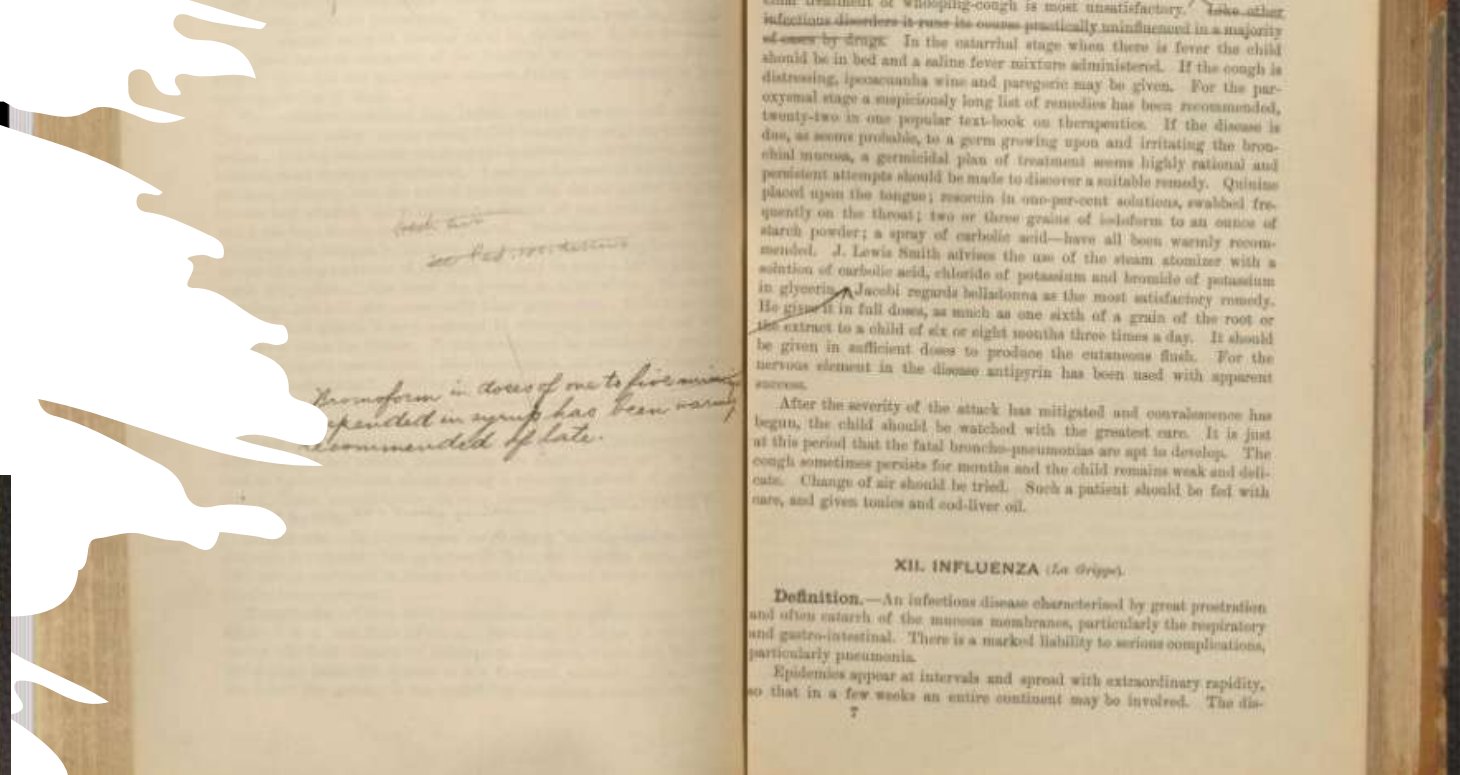 Bromoform in doses of one to five
in syrup has been
recommended of late.
treatment of whooping-cough is most unsatisfactory. Like other
infectious disorders it runs its course practically uninfluenced in a majority
of cases by drugs. In the catarrhal stage when there is fever the child
should be in bed and a saline fever mixture administered. If the cough is
distressing, ipecacuanha wine and paregoric may be given. For the par-
oxysmal stage a suspiciously long list of remedies has been recommended,
twenty-two in one popular text-book on therapeutics. If the disease is
due, as seems probable, to a germ growing upon and irritating the bron-
chial mucosa, a germicidal plan of treatment seems highly rational and
persistent attempts should be made to discover a suitable remedy. Quinine
placed upon the tongue; resorcin in one-per-cent solutions, swabbed fre-
quently on the throat; two or three grains of iodoform to an ounce of
starch powder; a spray of carbolic acid—have all been warmly recom-
mended. J. Lewis Smith advises the use of the steam atomizer with a
solution of carbolic acid, chloride of potassium and bromide of potassium
in glycerin. Jacobi regards belladonna as the most satisfactory remedy.
He gives it in full doses, as much as one sixth of a grain of the root or
the extract to a child of six or eight months three times a day. It should
be given in sufficient doses to produce the cutaneous flush. For the
nervous element in the disease antipyrin has been used with apparent
success.
After the severity of the attack has mitigated and convalescence has
begun, the child should be watched with the greatest care. It is just
at this period that the fatal broncho-pneumonias are apt to develop. The
cough sometimes persists for months and the child remains weak and deli-
cate. Change of air should be tried. Such a patient should be fed with
care, and given tonics and cod-liver oil.
XII. INFLUENZA (La Grippe).
Definition.—An infectious disease characterized by great prostration
and often catarrh of the mucous membranes, particularly the respiratory
and gastro-intestinal. There is a marked liability to serious complications,
particularly pneumonia.
Epidemics appear at intervals and spread with extraordinary rapidity,
so that in a few weeks an entire continent may be involved. The dis-
7